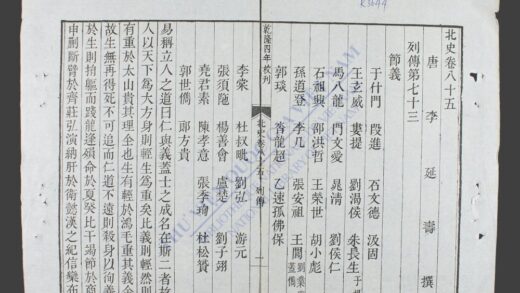 R.3644
北史卷八十五
唐 李 延 壽 撰
列傳第七十三
節義
于什門 段進 石文德 汲固
王玄威 婁提 劉渴侯 朱長生 于
馬八龍 門文愛 晁清 劉侯仁
石祖興 邵洪哲 王榮世 胡小彪
孫道登 李几 張安祖 王閭
郭琰 沓龍超 乙速孤佛保
乾隆四年校刊
北史卷八十五 列傳
一
李棠 杜叔毗 劉弘 游元
張須陁 楊善會 盧楚 劉子翊
堯君素 陳孝意 張季珣 杜松贇
郭世儁 郎方貴
易稱立人之道曰仁與義蓋士之成名在斯二者故
人以天下為大方身則輕生為重矣比義則輕然則
有重於太山貴其理全也生有輕於鴻毛重其義全
故生無再得死不可追而仁道不遠則殺身以徇義
於生則捐軀而踐龍逄殞命於夏癸比干竭節於商
申蒯斷臂於齊莊弘演納肝於衛懿漢之紀信欒布